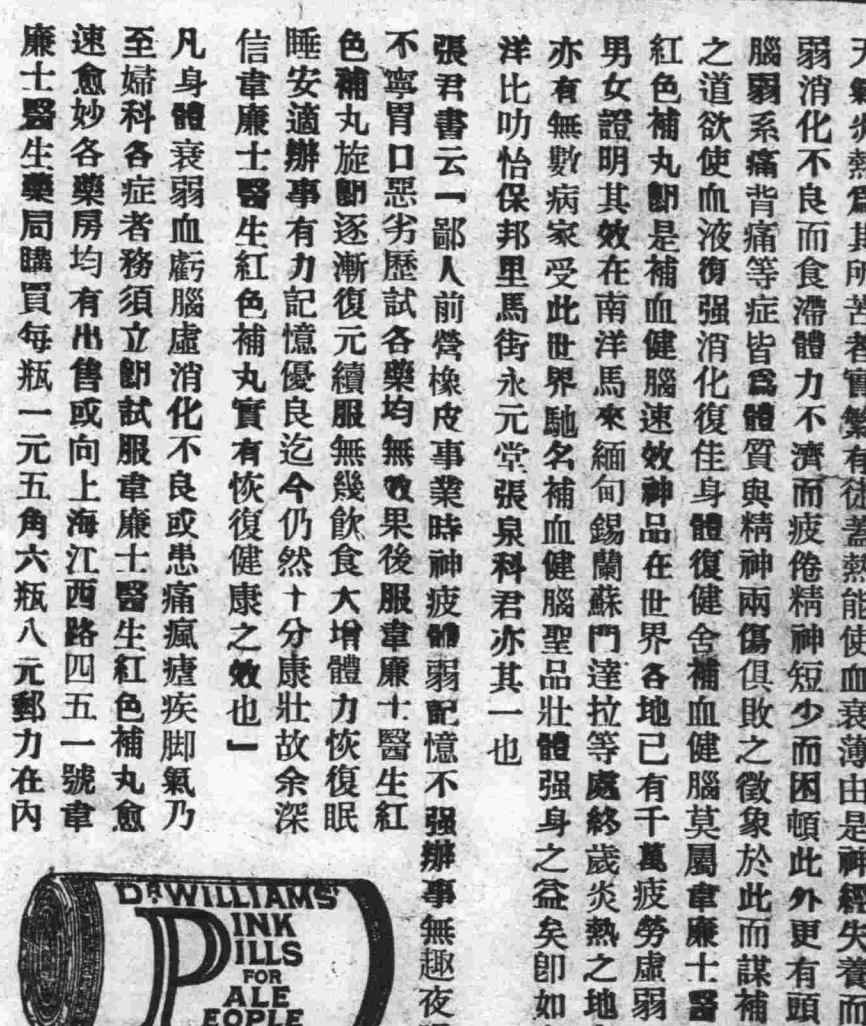 天氣炎熱爲其所苦者實繁有徒蓋熱能使血衰薄由是神經失養而
弱消化不良而食滯體力不濟而疲倦精神短少而困頓此外更有頭
腦弱系痛背痛等症皆爲體質與精神兩傷俱敗之徵象於此而謀補
之道欲使血液復强消化復佳身體復健舍補血健腦莫屬韋廉士醫
紅色補丸卽是補血健腦速效神品在世界各地已有千萬疲勞虛弱
男女證明其效在南洋馬來緬甸錫蘭蘇門達拉等處終歲炎熱之地
亦有無數病家受此世界馳名補血健腦聖品壯體强身之益矣卽如
洋比叻怡保邦里馬街永元堂張泉科君亦其一也
張君書云「鄙人前營橡皮事業時神疲體弱記憶不强辦事無趣夜
不寧胃口惡劣歷試各藥均無效果後服韋廉士醫生紅
色補丸旋卽逐漸復元續服無幾飲食大增體力恢復眠
睡安適辦事有力記憶優良迄今仍然十分康壯故余深
信韋廉士醫生紅色補丸實有恢復健康之效也」
凡身體衰弱血虧腦虛消化不良或患痛瘋瘧疾脚氣乃
至婦科各症者務須立卽試服韋廉士醫生紅色補丸愈
速愈妙各藥房均有出售或向上海江西路四五一號韋
廉士醫生藥局購買每瓶一元五角六瓶八元郵力在內
DR WILLIAMS'
PINK
PILLS
FOR
ALE
EOPLE